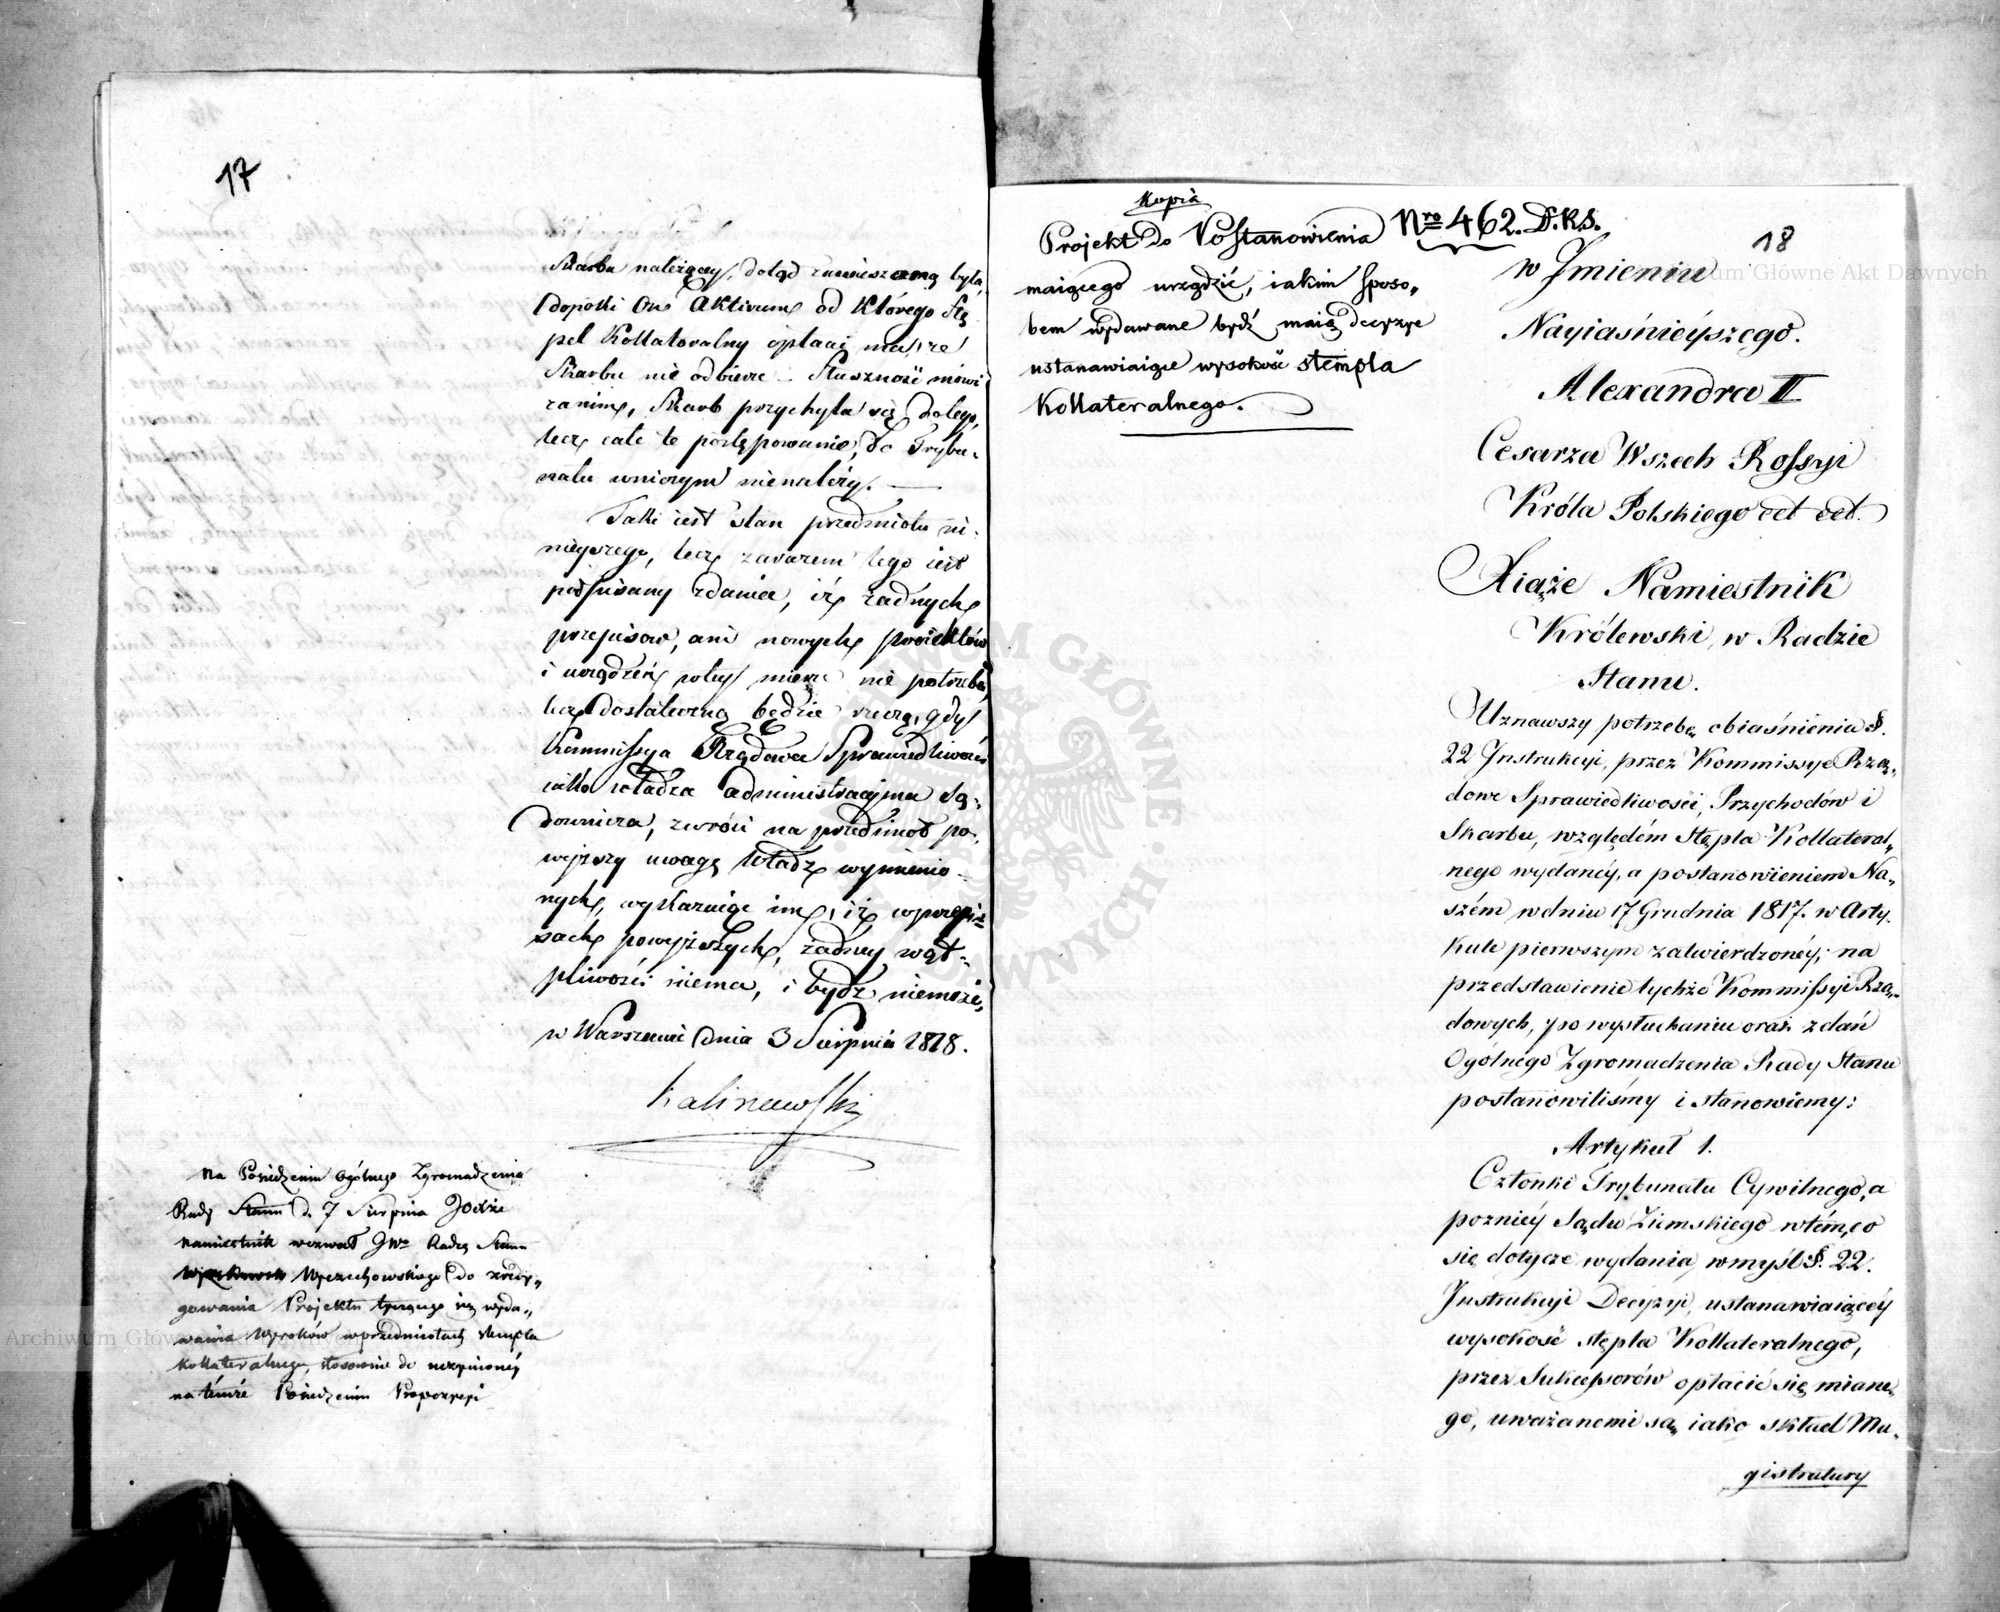 17
Skarbu należący, dotąd zawieszoną była,
dopóki on Aktivum od którego Stę
pel Kollateralny opłacić ma, ze
Skarbu nie odbierze – Słuszność mówi
zanim, Skarb przychyla się do tego,
lecz całe to postępowanie, do Trybu-
nału wniczym nienależy. —
Taki iest stan przedmiotu ni-
nieyszego, lecz zarazem tego iest
podpisany zdania, iż żadnych
przepisow, ani nowych proiektów
i urządzeń w tey mierze nie potrzeba,
lecz dostateczną będzie rzeczą, gdy
Kommissya Rządowa Sprawiedliwości
iako władza administracyjna Są-
downicza, zwróci na przedmiot po-
wyższy uwagę Władz wymienio-
nych, wykazuiąc im, iż w przepi-
sach powyższych, żadney wąt-
pliwości niema, i bydź niemoże,
w Warszawie dnia 3 Sierpnia 1818.
Kalinowski
Na Posiedzeniu Ogólnego Zgromadzenia
Rady Stanu d. 7 Sierpnia JOXże
Namiestnik wezwał JWo Radcę Stanu
Wyczechowskiego do zredy„
gowania Projektu tyczącego się wyda„
wania Wyroków w przedmiotach stempla
Kollateralnego, stosownie do uczynionéy
na témże Posiedzeniu Propozycyi
Kopia
Projekt do Postanowienia
maiącego urządzić, iakim sposo„
bem wydawane bydź maią decyzye
ustanawiaiące wysokość stempla
Kollateralnego.
Nro 462. D.K.S.
18
w Jmieniu
Nayiaśnieyszego.
Alexandra II
Cesarza Wszech Rossyi
Króla Polskiego ect ect.
Xiąże Namiestnik
Królewski, w Radzie
Stanu.
Uznawszy potrzebę obiaśnienia §.
22 Jnstrukcyi, przez Kommissye Rzą„
dowe Sprawiedliwości, Przychodów i
Skarbu, względém Stępla Kollateral„
nego wydanéy, a postanowieniem Na„
szém w dniu 17 Grudnia 1817. w Arty.
kule pierwszym zatwierdzonéy; na
przedstawienie tychże Kommissyi Rzą„
dowych, y po wysłuchaniu oraz zdań
Ogólnégo Zgromadzenia Rady Stanu
postanowiliśmy i stanowiemy:
Artykuł 1.
Członki Trybunału Cywilnego, a
pozniéy Sądu Ziemskiego w tém, co
się dotycze wydania, w myśl §. 22.
Jnstrukcyi Decyzyi, ustanawiaiącéy
wysokość stępla Kollateralnego,
przez Sukcessorów opłacić się miane„
go, uważanemi są, iako skład Ma„
gistratury
Archiwum Główne Akt Dawnych